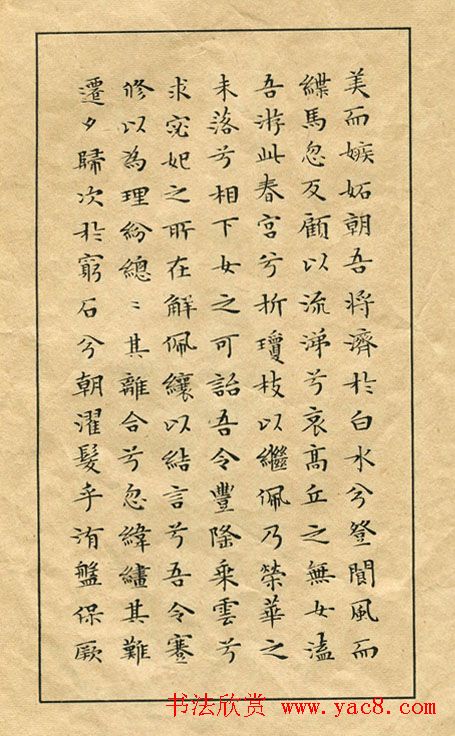 美而嫉妬朝吾將濟於白水兮登閬風而
緤馬忽反顧以流涕兮哀高丘之無女溘
吾游此春宮兮折瓊枝以繼佩乃榮華之
未落兮相下女之可詒吾令豐隆乘雲兮
求宓妃之所在解佩纕以結言兮吾令蹇
修以為理紛總〻其離合兮忽緯繣其難
遷夕歸次於窮石兮朝濯髮乎洧盤保厥
书法欣赏 www.yac8.com